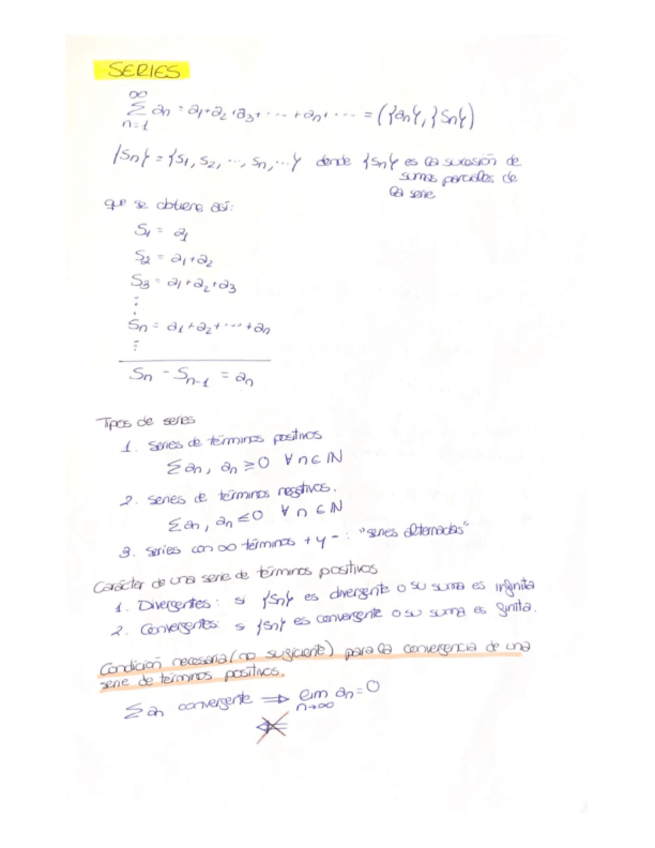 SERIES
∞
Σ an = a1+a2+a3+ ··· +an+ ··· = ({an}, {Sn})
n=1
{Sn} = {S1, S2, ..., Sn, ...} donde {Sn} es la sucesión de
sumas parciales de
la serie
que se obtiene así:
S1 = a1
S2 = a1+a2
S3 = a1+a2+a3
⋮
Sn = a1+a2+ ··· +an
⋮
Sn - Sn-1 = an
Tipos de series
1. Series de términos positivos
Σ an, an ≥ 0 ∀ n ∈ ℕ
2. Series de términos negativos.
Σ an, an ≤ 0 ∀ n ∈ ℕ
3. Series con ∞ términos + y - : "series alternadas"
Carácter de una serie de términos positivos
1. Divergentes: si {Sn} es divergente o su suma es infinita
2. Convergentes: si {Sn} es convergente o su suma es finita.
Condición necesaria (no suficiente) para la convergencia de una
serie de términos positivos.
Σ an convergente ⟹ lim an = 0
n→∞
⟸